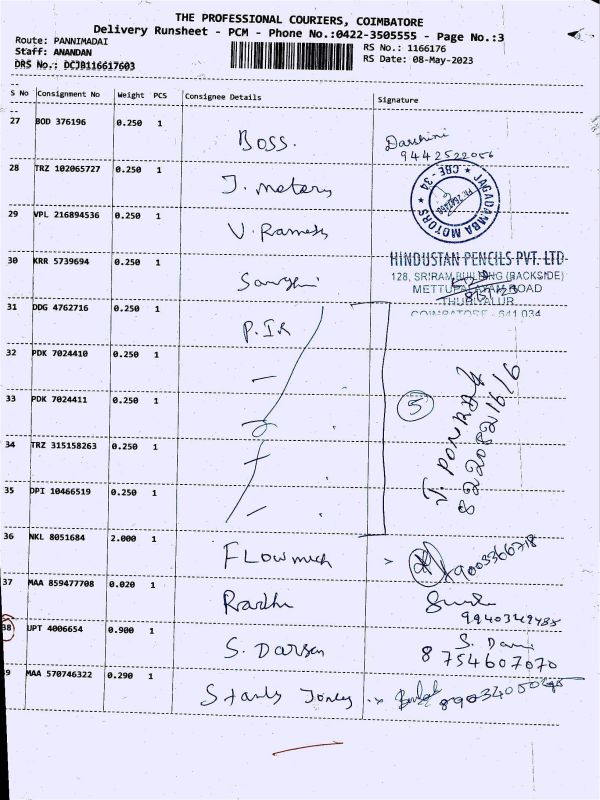 THE PROFESSIONAL COURIERS, COIMBATORE
Delivery Runsheet - PCM - Phone No.:0422-3505555 - Page No.:3
Route: PANNIMADAI
Staff: ANANDAN
DRS No.: DCJB116617603
RS No.: 1166176
RS Date: 08-May-2023
S No Consignment No Weight PCS Consignee Details Signature
27 BOD 376196 0.250 1 Boss. Darshini
9442522056
28 TRZ 102065727 0.250 1 J. motors
JAGADAMBA MOTORS ★ CBE - 34 ★
29 VPL 216894536 0.250 1 V. Ramesh
30 KRR 5739694 0.250 1
HINDUSTAN PENCILS PVT. LTD
128, SRIRAM BUILDING (BACKSIDE)
METTUPALAYAM ROAD
THUDIYALUR
COIMBATORE - 641 034
31 DDG 4762716 0.250 1 P.IR
32 PDK 7024410 0.250 1
33 PDK 7024411 0.250 1
5
34 TRZ 315158263 0.250 1
35 DPI 10466519 0.250 1
36 NKL 8051684 2.000 1 Flowmech
37 MAA 859477708 0.020 1 Radha
38 UPT 4006654 0.900 1 S. Darsan
8754607070
39 MAA 570746322 0.290 1 Stanly Jones